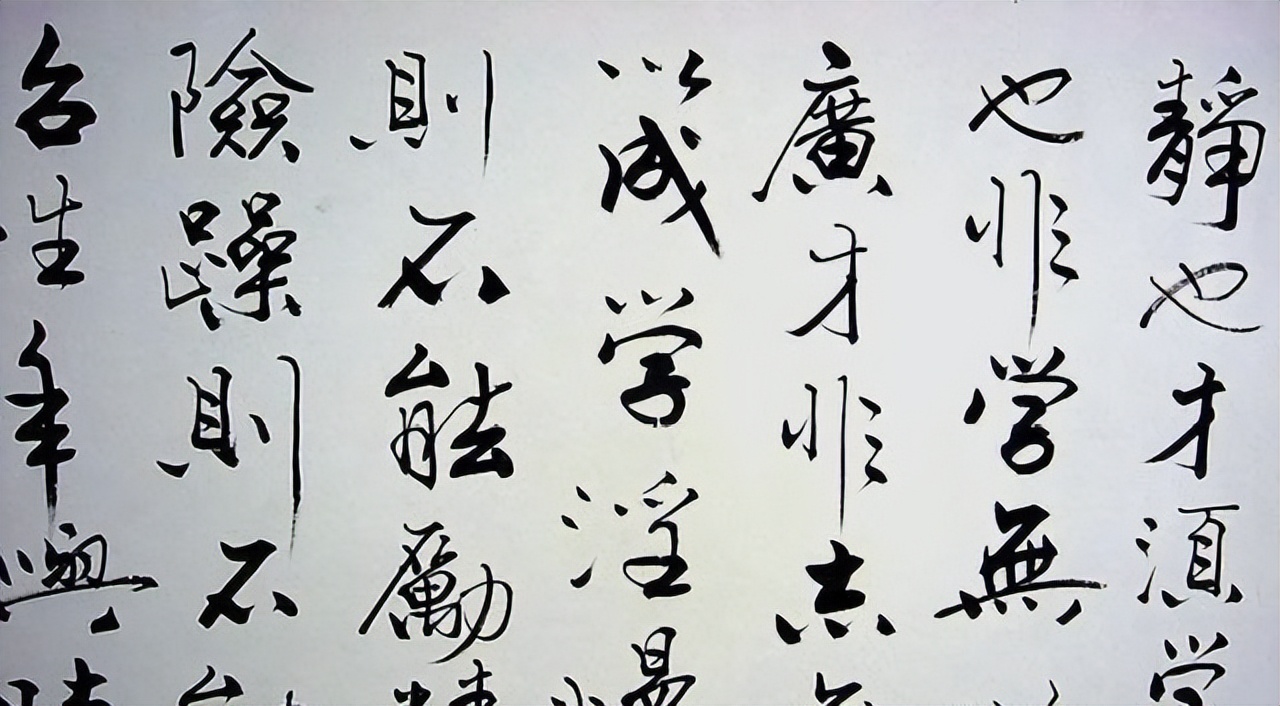 靜也才須学
也非学無
廣才非志
以成学淫慢
則不能勵
險躁則不
治性年與